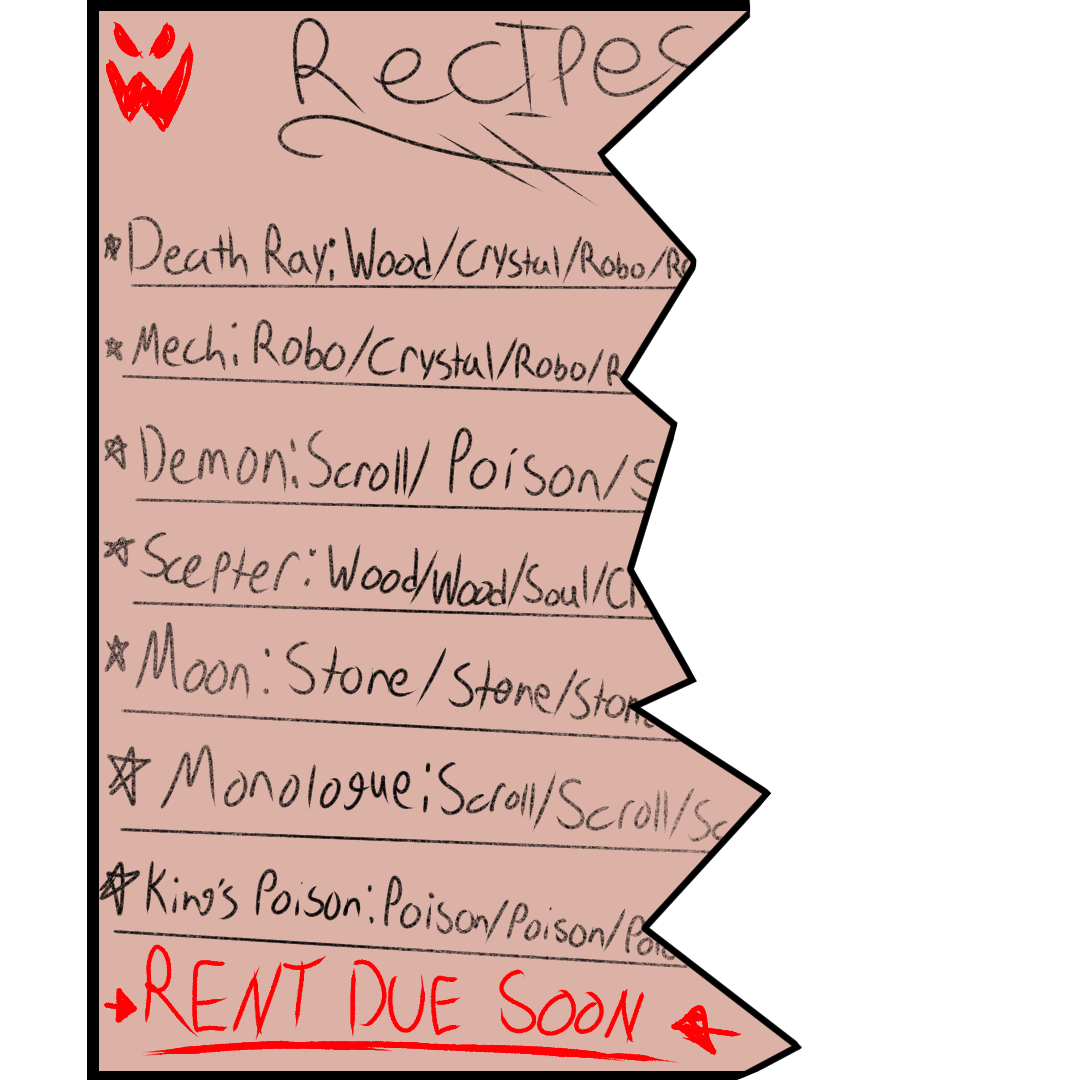 Recipes
Death Ray: Wood/Crystal/Robo/
Mech: Robo/Crystal/Robo/R
Demon: Scroll/ Poison/S
Scepter: Wood/Wood/Soul/C
Moon: Stone/Stone/Stone
Monologue: Scroll/Scroll/Sc
King's Poison: Poison/Poison/Poi
RENT DUE SOON